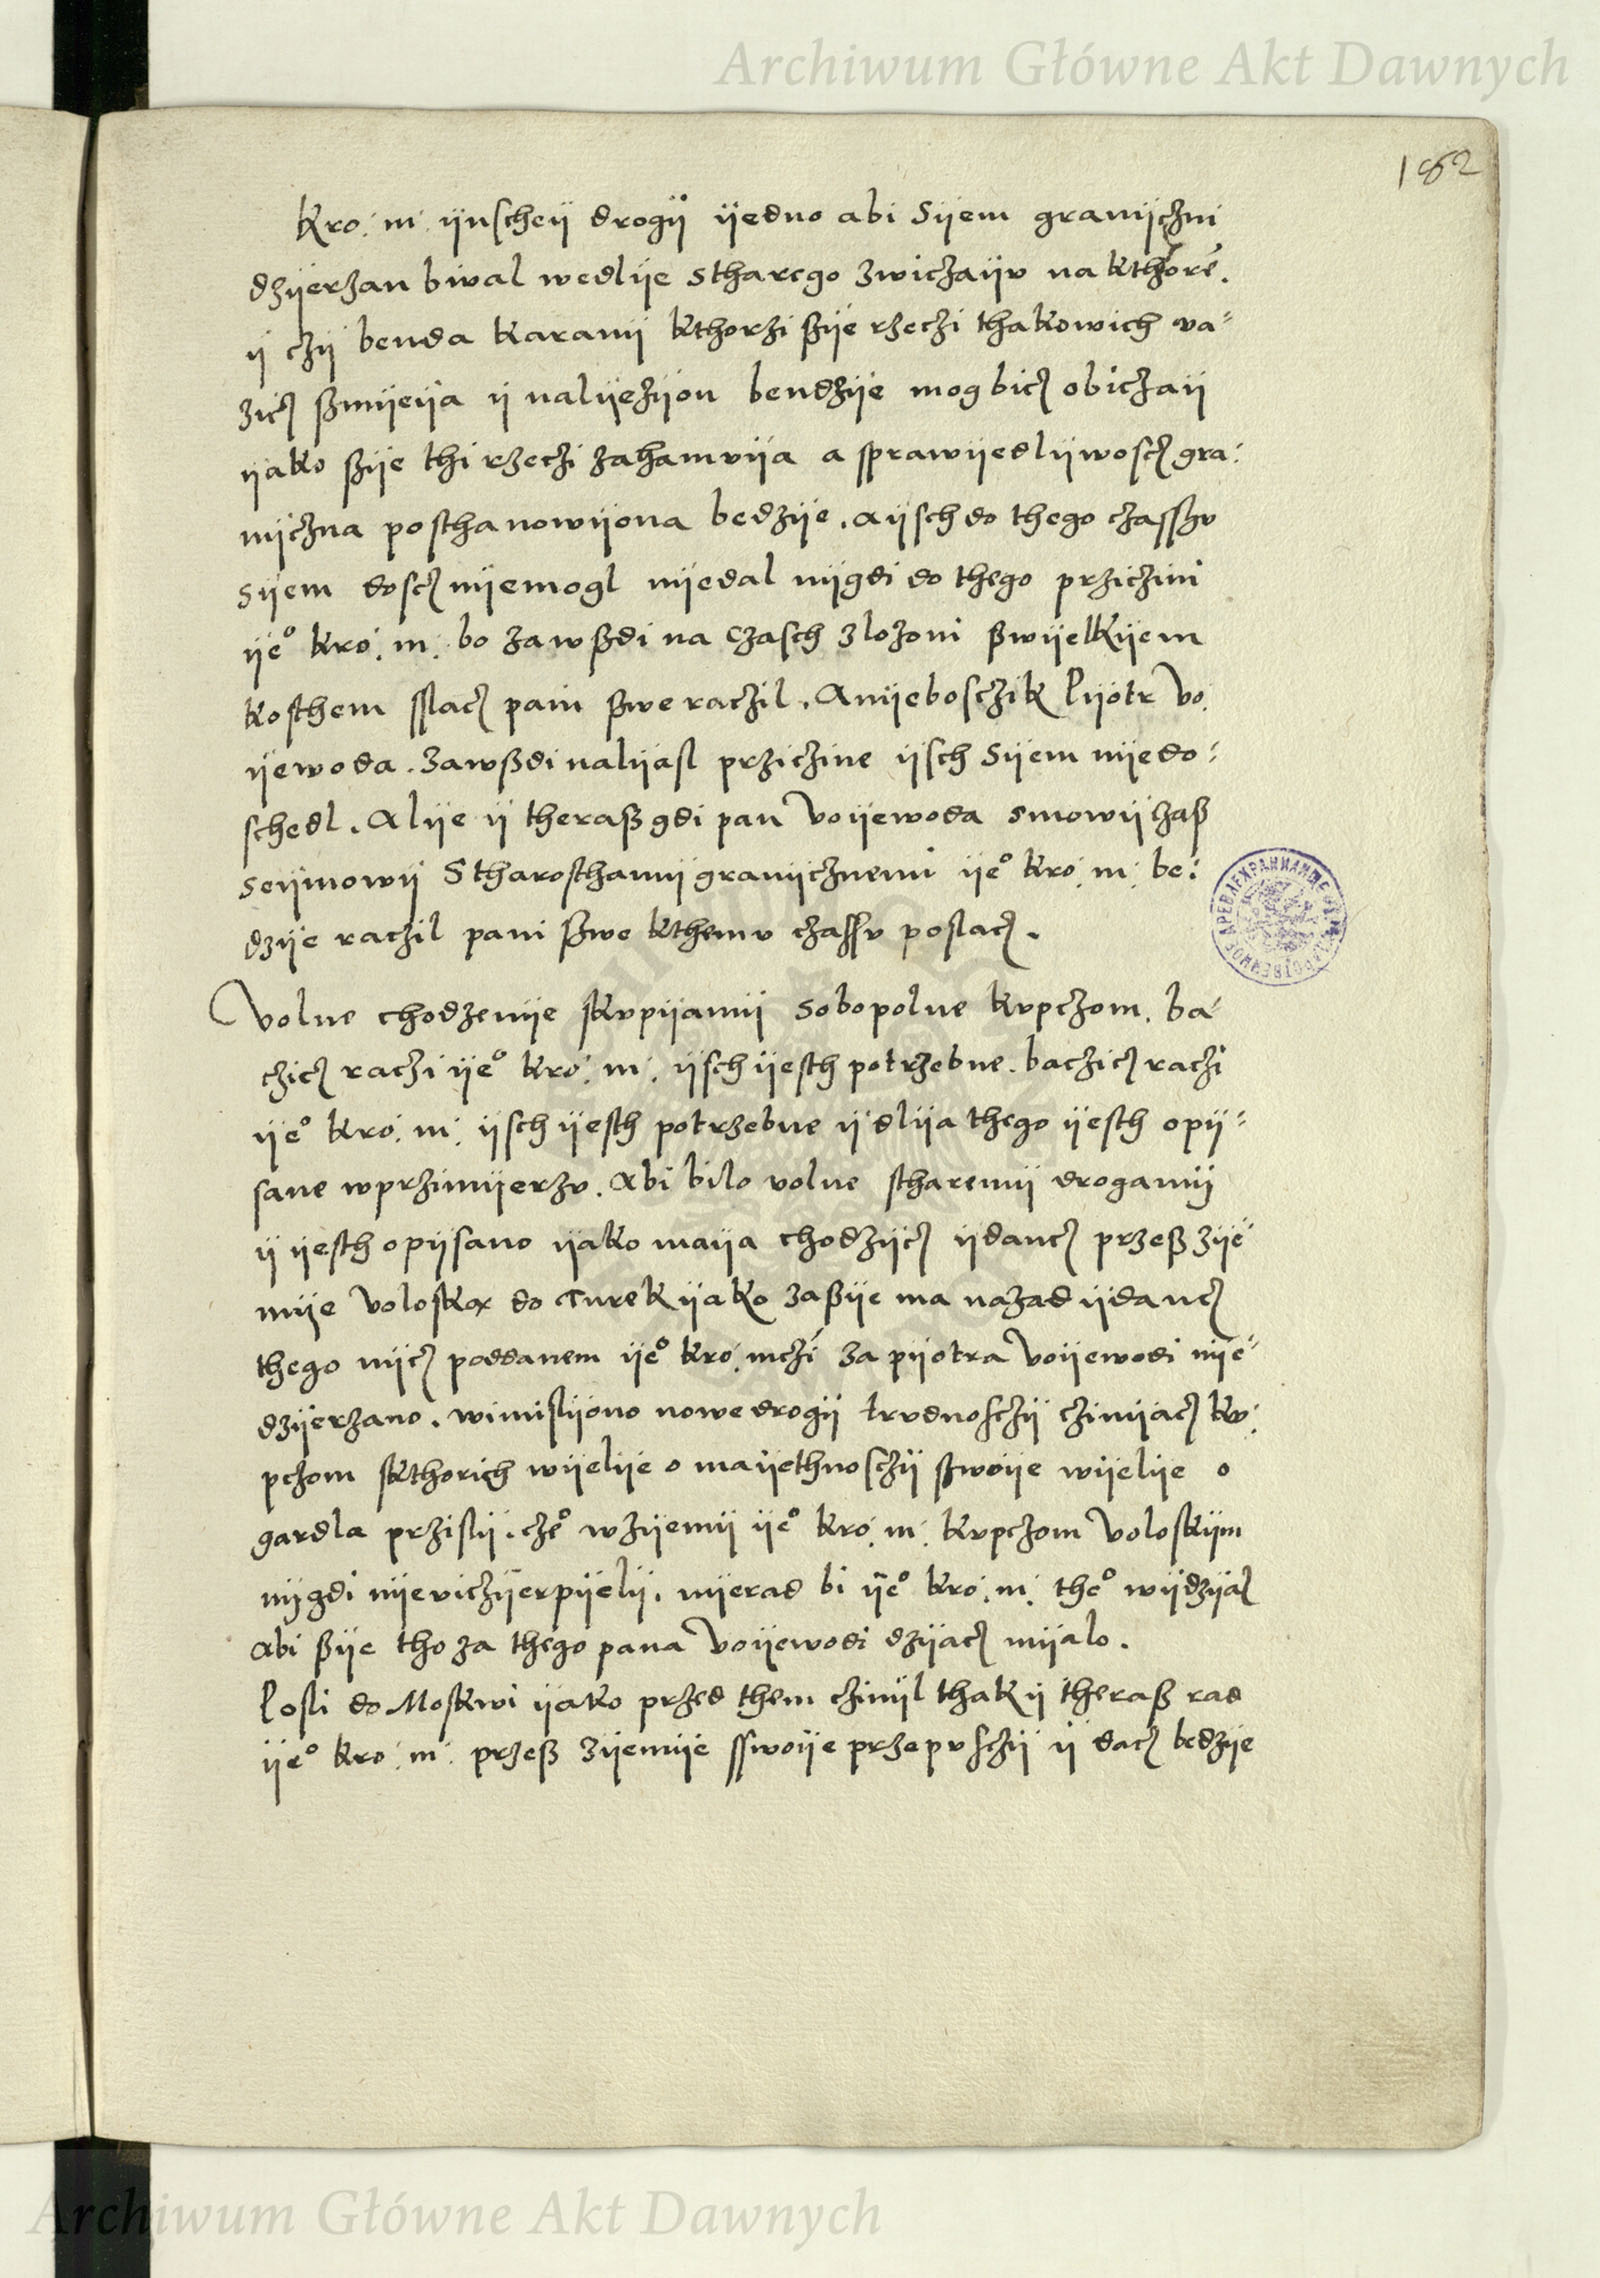 Archiwum Główne Akt Dawnych
182
kro: m: ÿnscheÿ drogÿ ÿedno abi Sÿem granÿczni
dzÿerzan biwal wedlÿe starego zwiczaÿv na kthore.
ÿ czÿ benda karanÿ kthorzi ßÿe rzeczi thakowich va-
zicz ßmÿeÿa ÿ nalÿezÿon bendzÿe mog bicz obiczaÿ
ÿako ßÿe thi rzeczi zahamvÿa a sprawÿedlÿwoscz gra:
nÿczna posthanowÿona bedzÿe. aÿsch do thego czasszv
Sÿem doscz nÿemogl nÿedal nÿgdi do thego prziczini
ÿe° kro: m: bo zawßdi na czasch zlozoni ßwÿelkÿem
kosthem sslacz pani ßwe raczil. Anÿebosczik Pÿotr Vo
ÿewoda. zawßdi nalÿasl prziczine ÿsch Sÿem nÿedo-
schedl. Alÿe ÿ theraß gdi pan Voÿewoda smowÿ czaß
seÿmowÿ Stharosthamÿ granÿcznemi ÿe° kro: m: be:
dzÿe raczil pani ßwe kthemv czassv poslacz.
Volne chodzenÿe skvpÿamÿ sobopolne kvpczom. ba-
czicz raczi ÿe° kro: m: ÿsch ÿesth potrzebne. baczicz raczi
ÿe° kro: m: ÿsch ÿesth potrzebne ÿ dlÿa thego ÿesth opÿ-
sane wprzimÿerzv. Abi bilo volne stharemÿ drogamÿ
ÿ ÿesth opÿsano ÿako maÿa chodzÿcz ÿdancz przeß zÿe-
mÿe Voloska do Turek ÿako zaßÿe ma nazad ÿdancz
thego nÿcz poddanem ÿe° kro: mczi za pÿotra Voÿewodi nÿe-
dzÿerzano. wimislÿono nowe drogÿ trvdnosczÿ czinÿacz kv:
pczom skthorich wÿelÿe o maÿethnosczÿ ßwoÿe wÿelÿe o
gardla przislÿ. cze° wzÿemÿ ÿe° kro: m: kvpczom Voloskÿm
nÿgdi nÿevczÿerpÿelÿ. nÿerad bi ÿe° kro: m: the° wÿdzÿal
abi ßÿe tho za thego pana Voÿewodi dzÿacz mÿalo.
Posli do Moskwi ÿako przed them czinÿl thak ÿ theraß rad
ÿe° kro: m: przeß zÿemÿe sswoÿe przepvsczÿ ÿ dacz bedzÿe
Archiwum Główne Akt Dawnych